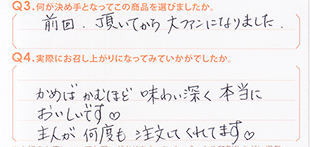 Q3.何が決め手となってこの商品を選びましたか。
前回、頂いてから大ファンになりました.
Q4.実際にお召し上がりになってみていかがでしたか。
かめばかむほど 味わい深く 本当に
おいしいです♡
主人が何度も注文してくれてます♡